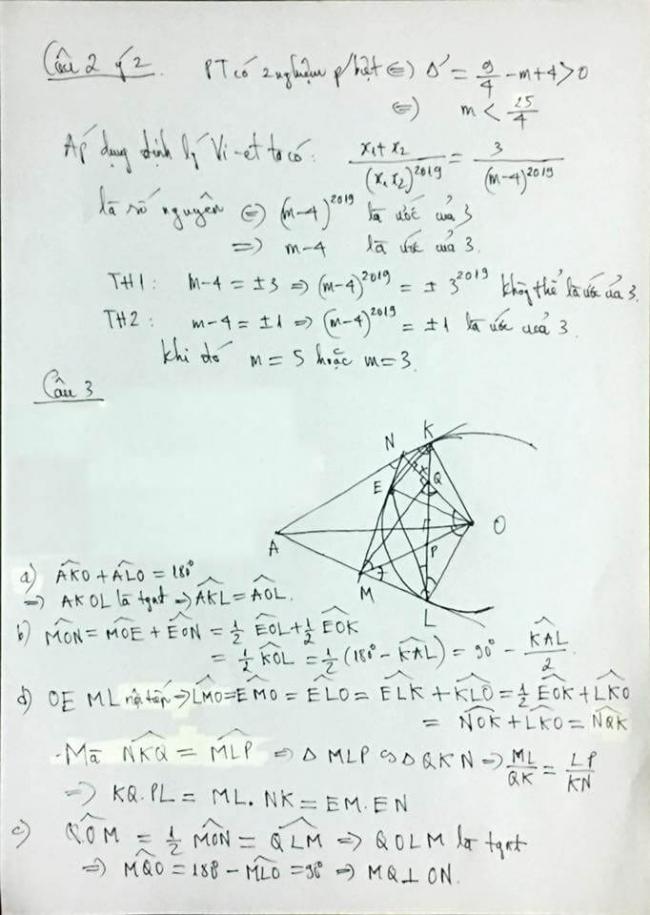 Câu 2 ý 2. PT có 2 nghiệm p/biệt ⇔ Δ' = 9/4 - m + 4 > 0
⇔ m < 25/4
Áp dụng định lý Vi-et ta có: (x₁ + x₂)/(x₁ x₂)^2019 = 3/(m-4)^2019
là số nguyên ⇔ (m-4)^2019 là ước của 3
⇒ m-4 là ước của 3.
TH1: m-4 = ±3 ⇒ (m-4)^2019 = ± 3^2019 không thể là ước của 3.
TH2: m-4 = ±1 ⇒ (m-4)^2019 = ±1 là ước của 3.
Khi đó m = 5 hoặc m = 3.
Câu 3
K
N
E
Q
A
O
P
M
L
a) ∠AKO + ∠ALO = 180°
⇒ AKOL là tgnt ⇒ ∠AKL = ∠AOL.
b) ∠MON = ∠MOE + ∠EON = ½ ∠EOL + ½ ∠EOK
= ½ ∠KOL = ½ (180° - ∠KAL) = 90° - ∠KAL/2.
d) OEML nội tiếp ⇒ ∠LMO = ∠EMO = ∠ELO = ∠ELK + ∠KLO = ½ ∠EOK + ∠LKO
= ∠NOK + ∠LKO = ∠NQK
Mà ∠NKQ = ∠MLP ⇒ Δ MLP ∽ Δ QKN ⇒ ML/QK = LP/KN
⇒ KQ.PL = ML.NK = EM.EN
c) ∠QOM = ½ ∠MON = ∠QLM ⇒ QOLM là tgnt
⇒ ∠MQO = 180° - ∠MLO = 90° ⇒ MQ ⊥ ON.